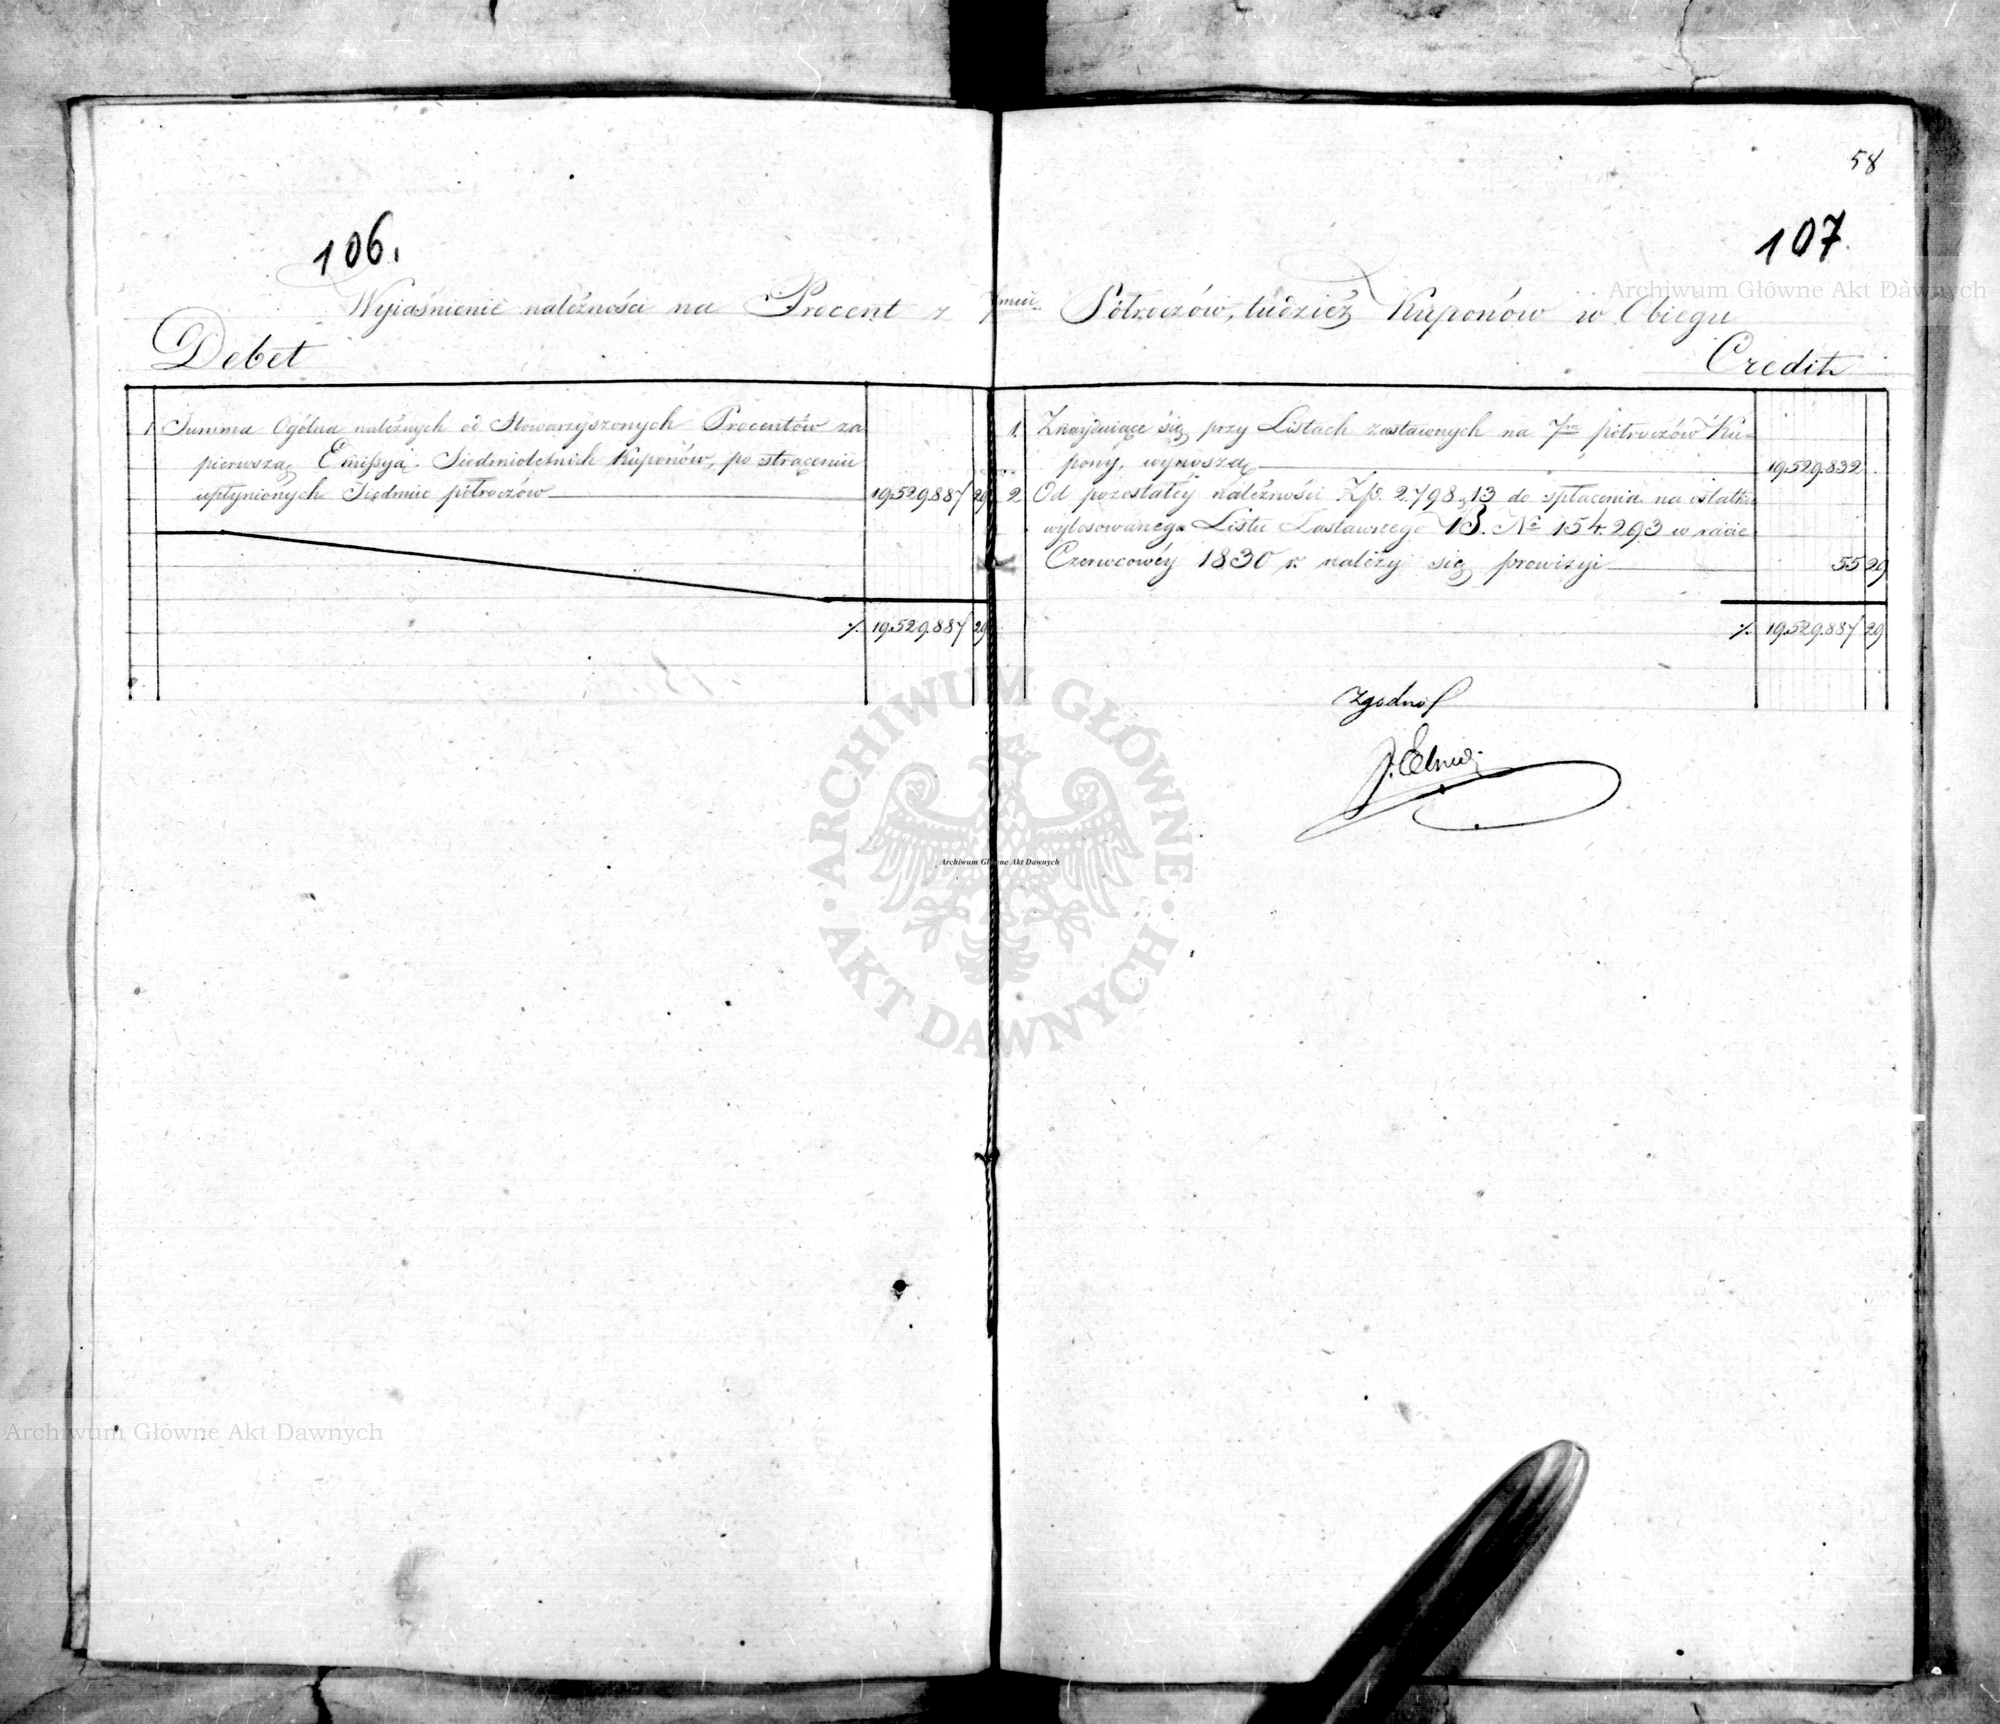 58
106.
107.
Wyiaśnienie należności na Procent z 7miu Półroczów, tudzież Kuponów w Obiegu
Debet
Credit
1 Summa Ogólna należnych od Stowarzyszonych Procentów za
pierwszą Emissyą Siedmioletnich Kuponów, po strąceniu
upłynionych Siedmiu półroczów 19.529.887 29
% 19.529.887 29
1. Znayduiące się przy Listach zastawnych na 7m półroczów Ku-
pony, wynoszą 19.529.832 .
2 Od pozostałey należności Złp. 2.798 g 13 do spłacenia na ostatku
wylosowanego Listu Zastawnego B. No 154.293 w racie
Czerwcowéy 1830 r. należy się prowizyi 55 29
% 19.529.887 29
Zgodno
Archiwum Główne Akt Dawnych
ARCHIWUM GŁÓWNE AKT DAWNYCH
Archiwum Główne Akt Dawnych
Archiwum Główne Akt Dawnych